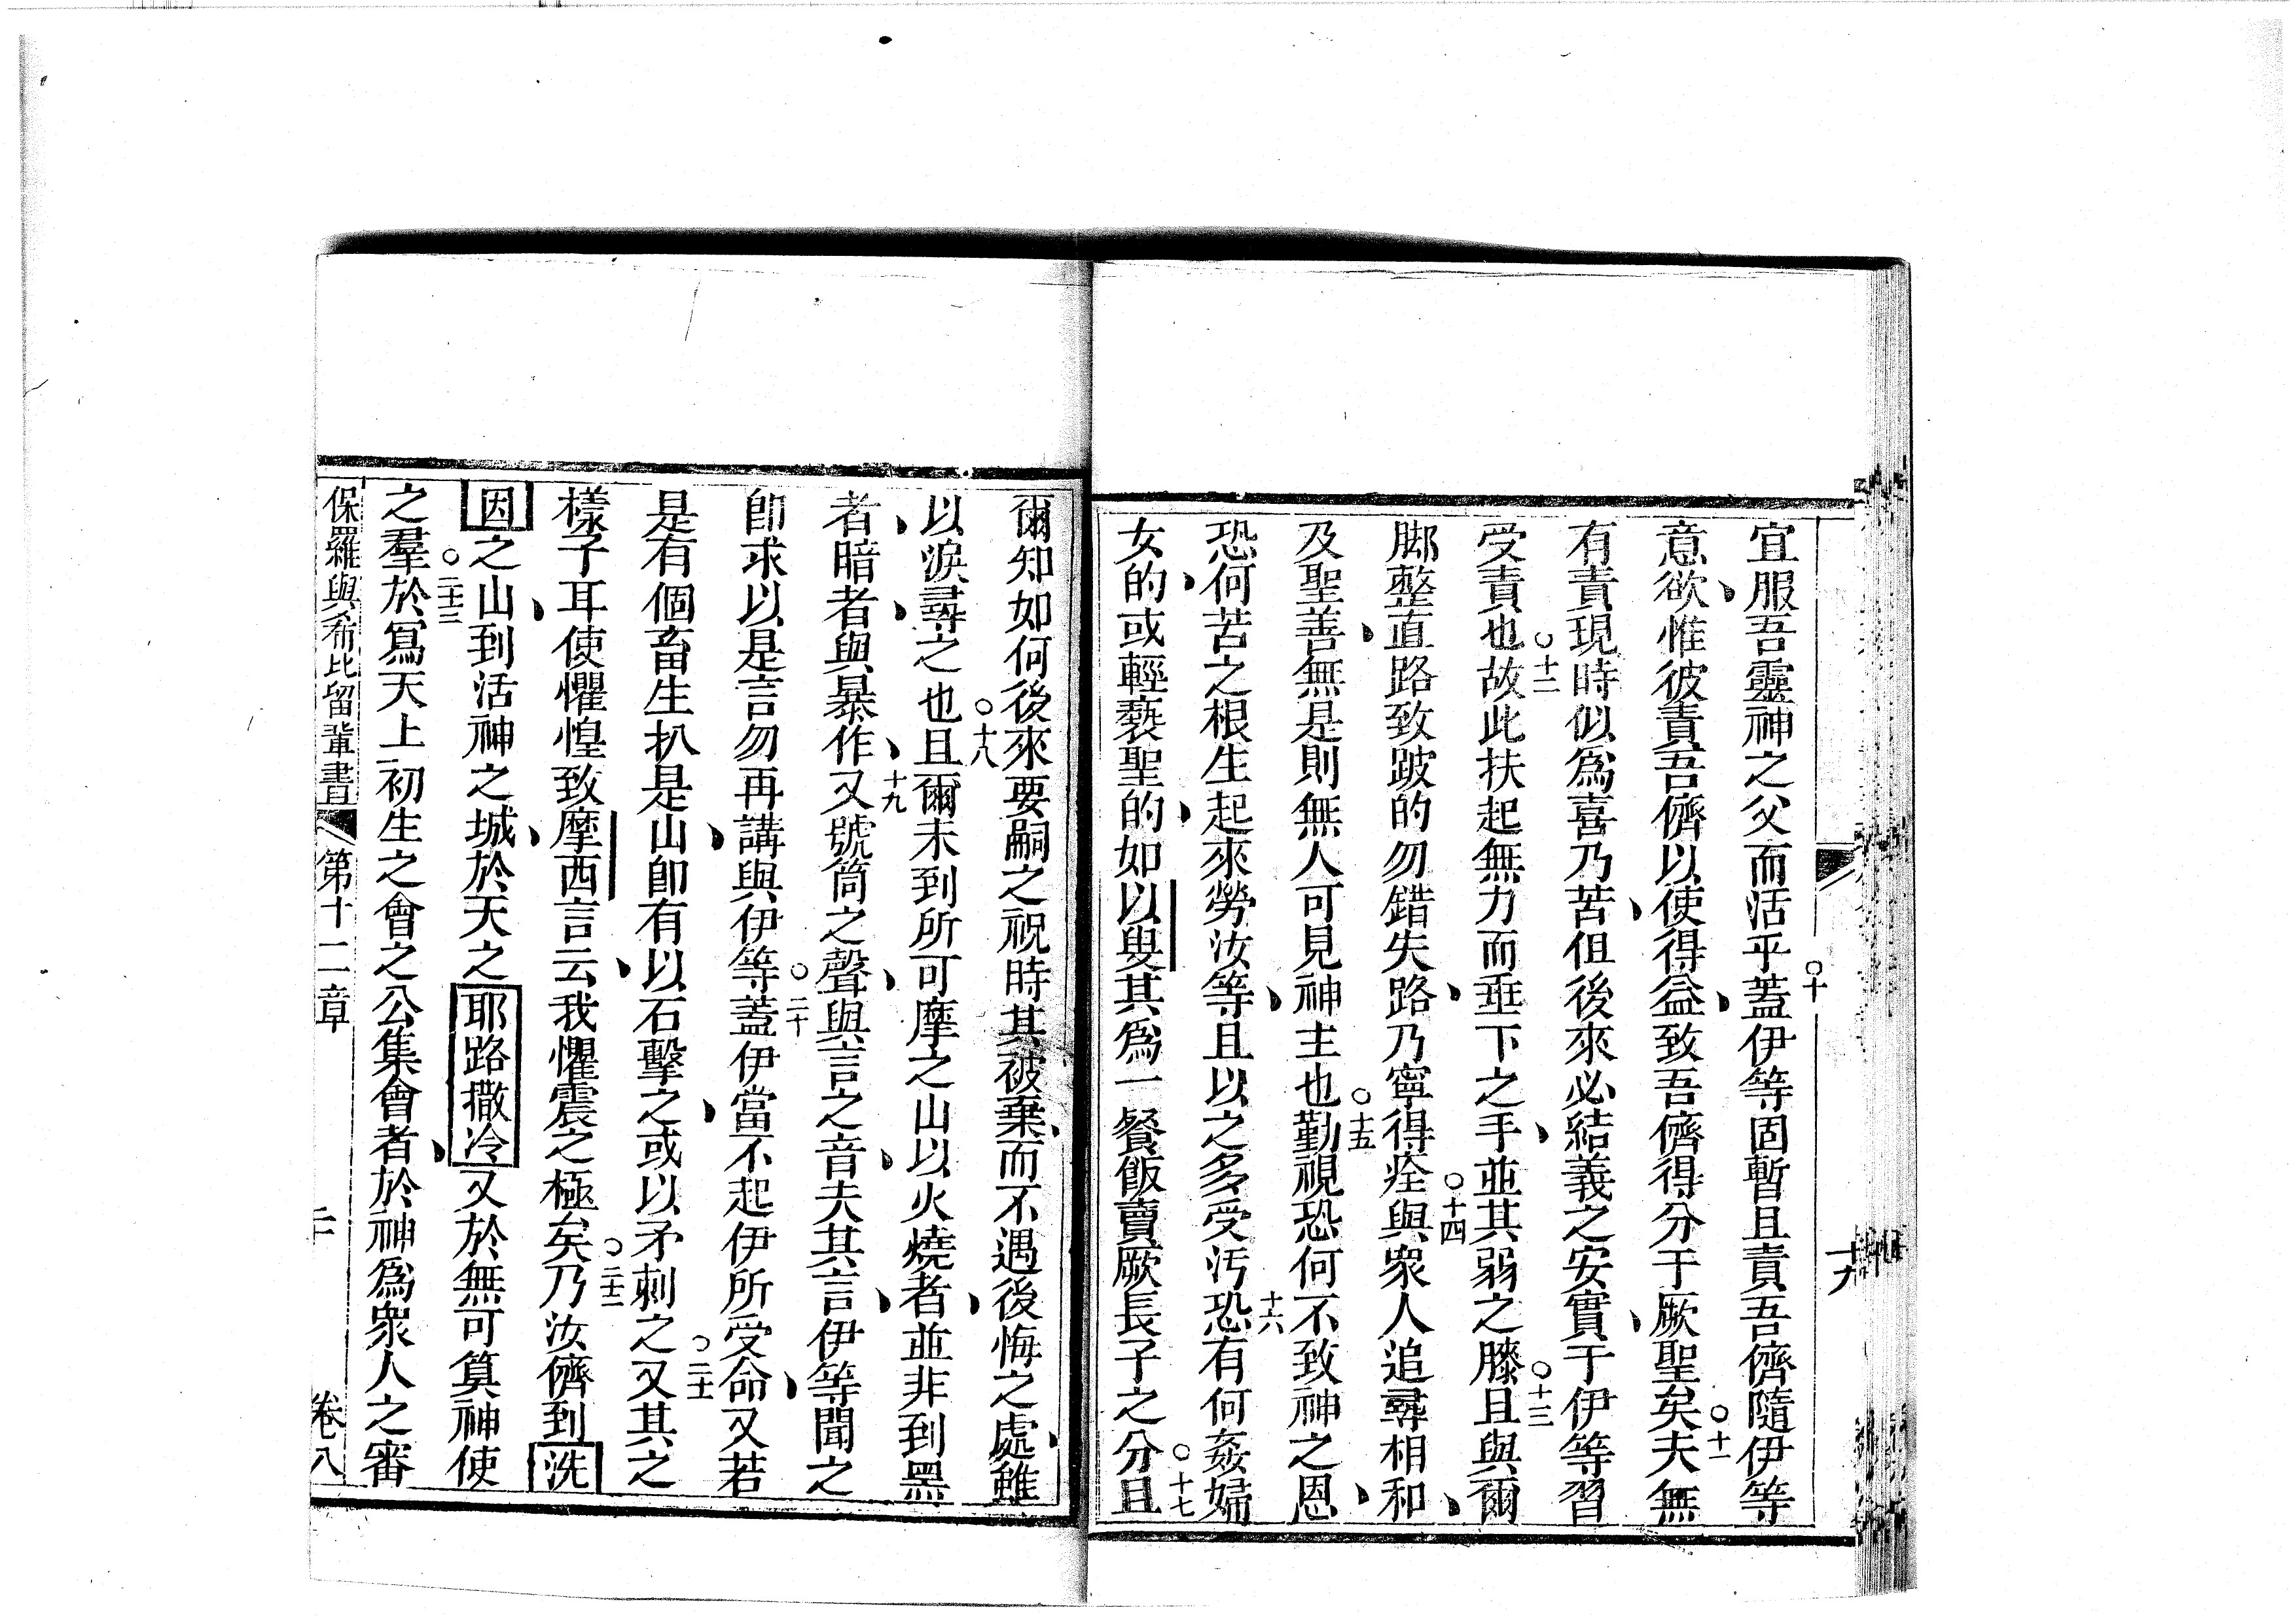 宜服吾靈神之父而活乎蓋伊等固暫且責吾儕隨伊等
意欲惟彼責吾儕以使得益致吾儕得分于厥聖矣夫無
有責現時似為喜乃苦但後來必結義之安實于伊等習
受責也故此扶起無力而垂下之手並其弱之膝且與爾
脚整直路致跛的勿錯失路乃寧得痊與衆人追尋相和
及聖善無是則無人可見神主也勤視恐何不致神之恩
恐何苦之根生起來勞汝等且以之多受汚恐有何姦婦
女的或輕褻聖的如以叟其為一餐飯賣厥長子之分且
爾知如何後來要嗣之祝時其被棄而不遇後悔之處雖
以淚尋之也且爾未到所可摩之山以火燒者並非到黑
者暗者與暴作又號筒之聲與言之音夫其言伊等聞之
卽求以是言勿再講與伊等蓋伊當不起伊所受命又若
是有個畜生扒是山卽有以石擊之或以矛刺之又其之
樣子耳使懼惶致摩西言云我懼震之極矣乃汝儕到洗
因之山到活神之城於天之耶路撒冷又於無可算神使
之羣於寫天上初生之會之公集會者於神為衆人之審
保羅與希比留輩書 第十二章 二十 卷八
十九
○十
○十一
○十二
○十三
○十四
○十五
十六
○十七
○十八
十九
○二十
○二十一
○二十二
○二十三